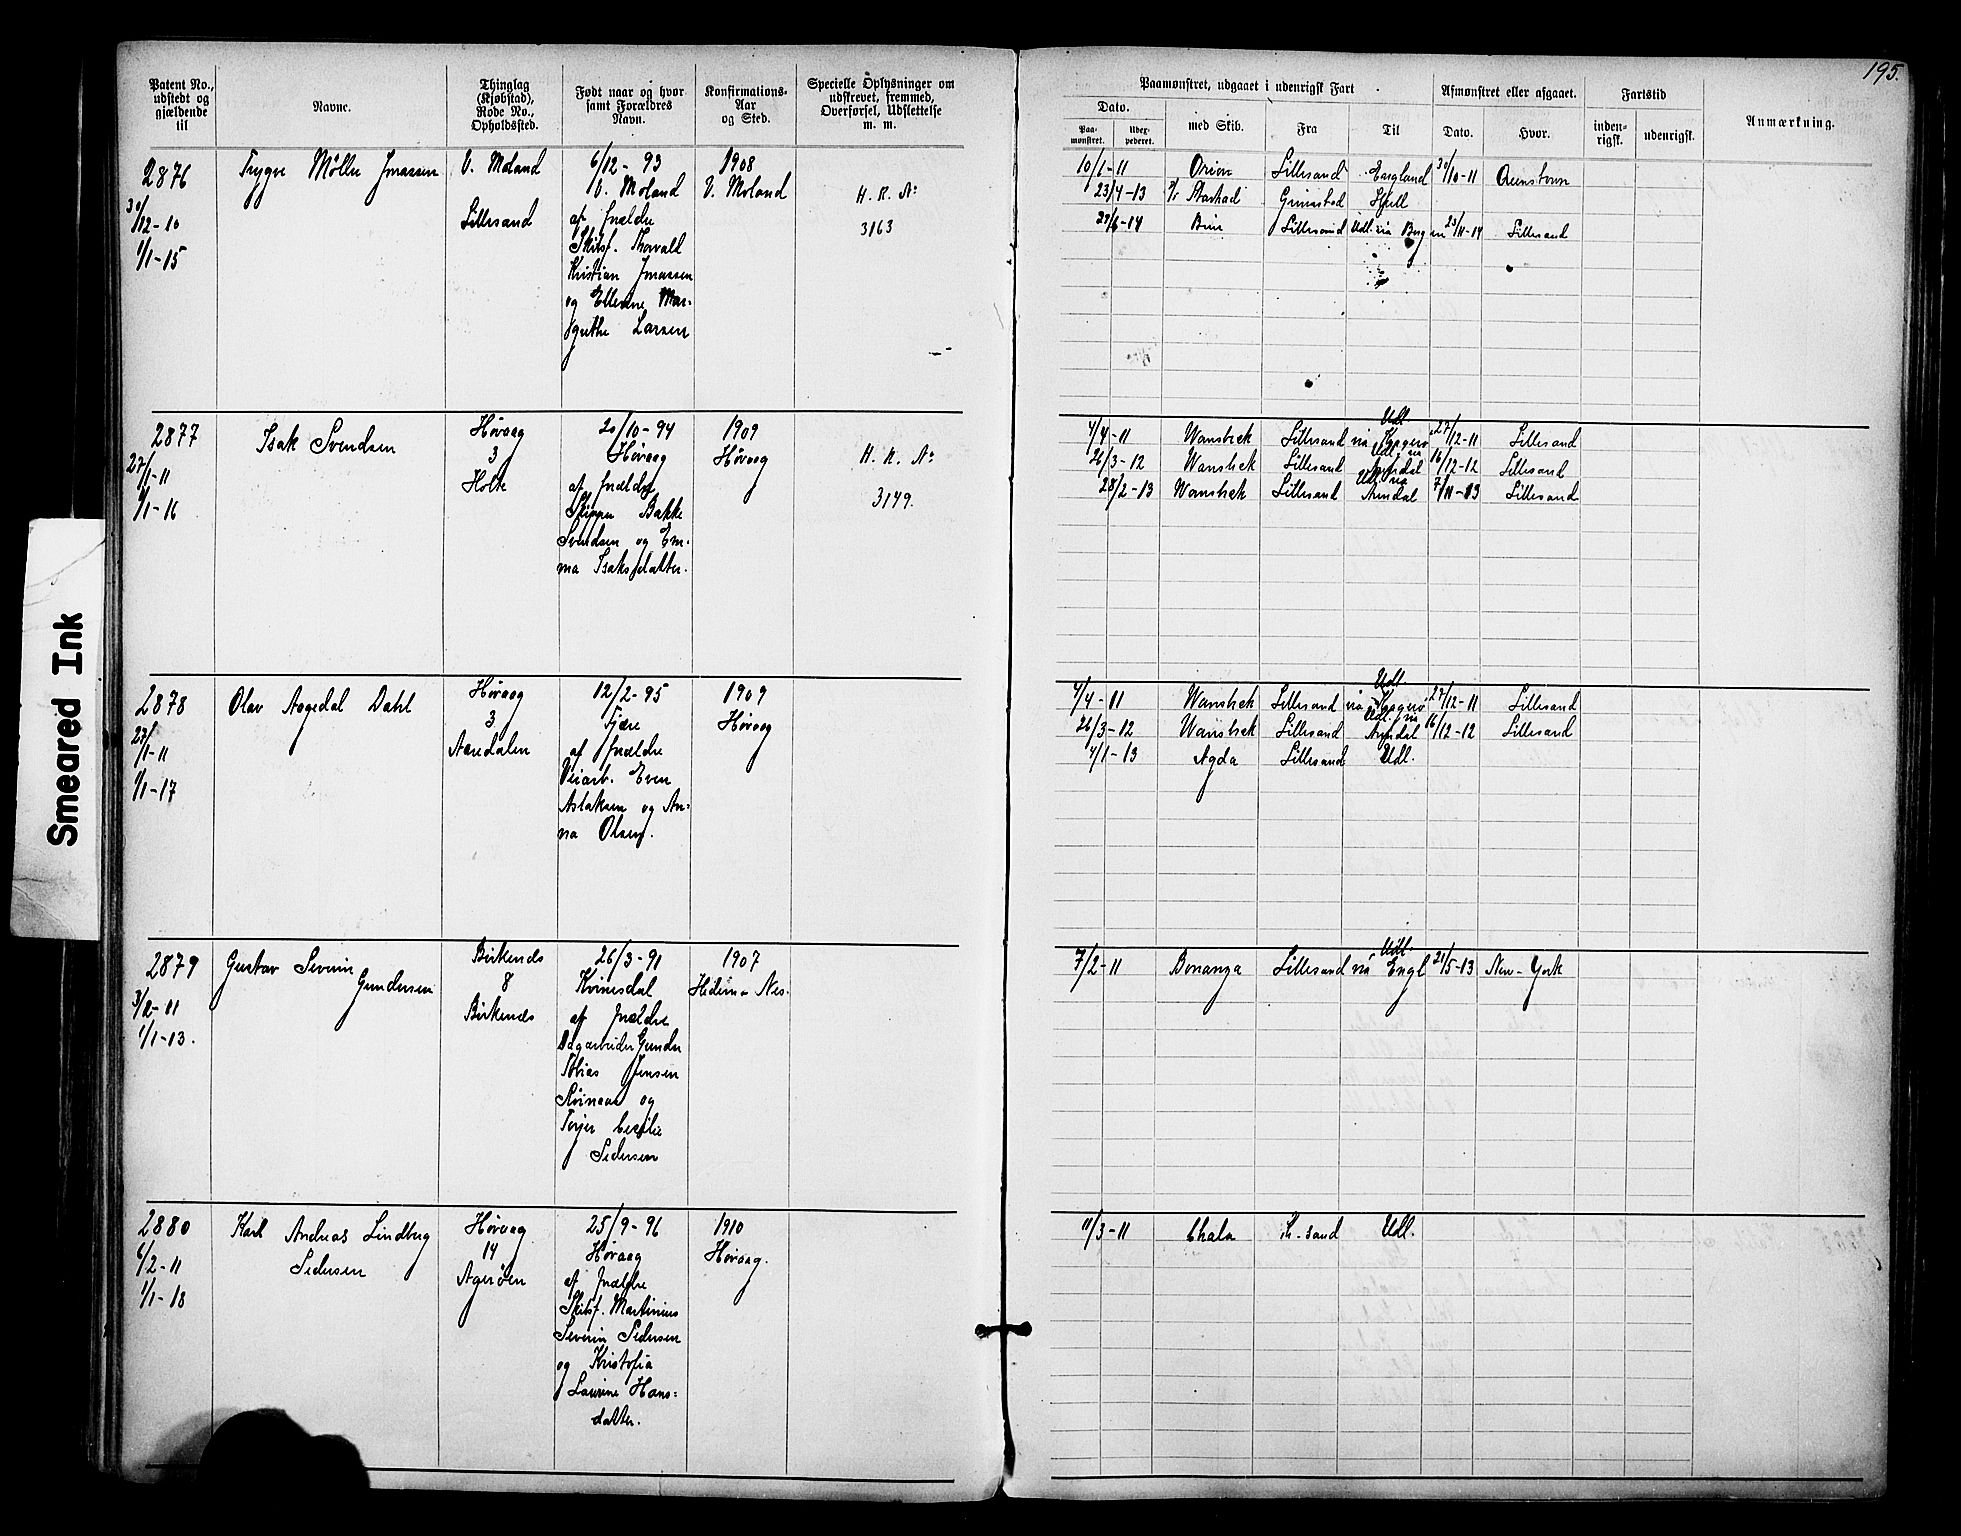 195.
Patent No., udstedt og gjældende til
Navne.
Thinglag (Kjøbstad), Rode No., Opholdssted.
Født naar og hvor samt Forældres Navn.
Konfirmations-Aar og Sted.
Specielle Oplysninger om udskrevet, fremmed, Overførsel, Udslettelse m. m.
Paamønstret, udgaaet i udenrigsk Fart
Afmønstret eller afgaaet.
Fartstid
Anmærkning.
Dato.
Paa-mønstret.
Uder-pederet.
med Skib.
Fra
Til
Dato.
Hvor.
inden-rigsk.
udenrigsk.
2876
30/12-10
1/1-15
Trygve Møller Jonassen
V. Moland
Lillesand
6/12-93
V. Moland
af Forældre
Skibsf. Thorvald
Kristian Jonassen
og Ellevine Mar-
grethe Larsen
1908
V. Moland
H. R. No
3163
10/1-11 Orion Lillesand England 30/10-11
23/4-13 Grimstad Hull
Lillesand Udl. via Bergen 23/11-14 Lillesand
2877
27/1-11
1/1-16
Isak Svendsen
Høvaag
3
Holte
20/10-94
Høvaag
af Forældre
Skipper Bakke
Svendsen og Em-
ma Isaksdatter.
1909
Høvaag
H. R. No
3149.
4/4-11 Wansbek Lillesand Udl. via Kragerø 27/12-11 Lillesand
26/3-12 Wansbek Lillesand Udl. via Arendal 16/12-12 Lillesand
28/2-13 Wansbek Lillesand Udl. via Arendal 7/11-13 Lillesand
2878
27/1-11
1/1-17
Olav Aagedal Dahl
Høvaag
3
Aamdalen
12/2-95
Fjære
af Forældre
Veiarb. Even
Aslaksen og An-
na Olsen.
1909
Høvaag
4/4-11 Wansbek Lillesand Udl. via Kragerø 27/12-11 Lillesand
26/3-12 Wansbek Lillesand Udl. via Arendal 16/12-12 Lillesand
4/1-13 Agda Lillesand Udl.
2879
3/2-11
1/1-13.
Gustav Severin
Gundersen
Birkenes
8
Birkenes
26/3-91
Kvinesdal
af Forældre
Dagarbeider Gunder
Tobias Jensen
og
Cecilie
Pedersen
1907
Nes.
7/2-11 Bonanza Lillesand Udl. via Engl 21/5-13 New-York
2880
6/2-11
1/1-18
Karl Andreas Lindberg
Pedersen
Høvaag
14
Agerøen
25/9-96
Høvaag
af Forældre
Skibsf. Martinius
Severin Pedersen
og Kristofia
Laurine Hans-
datter.
1910
Høvaag.
11/3-11 Chala Kr.sand Udl.
Smeared Ink